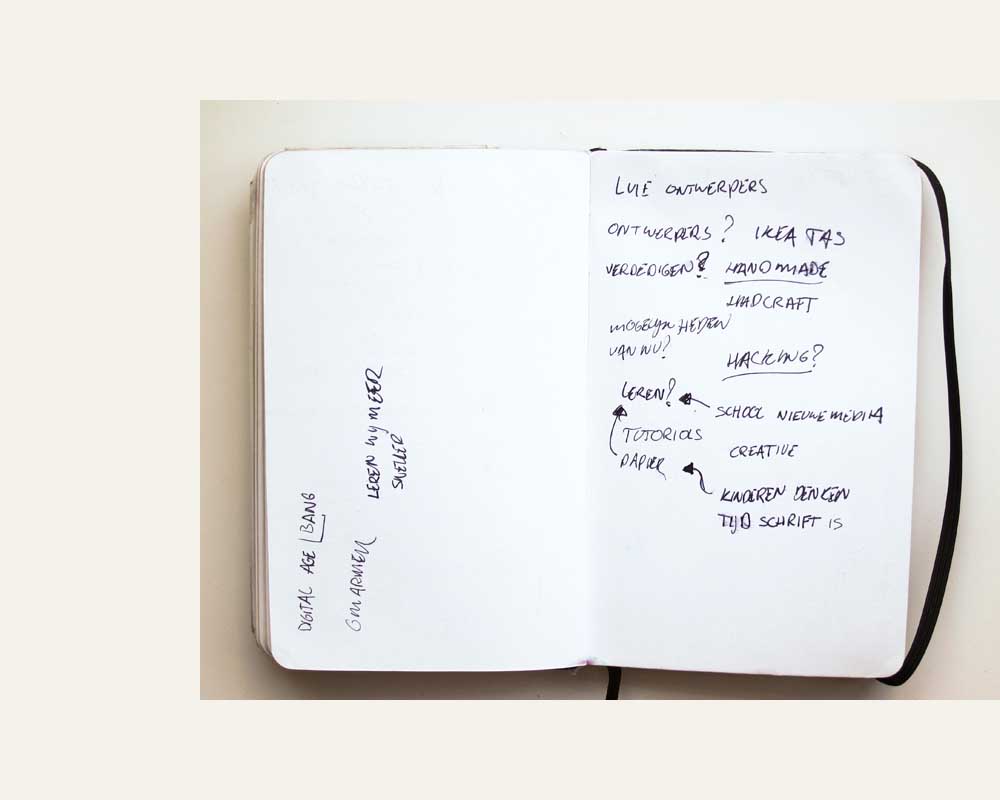 DIGITAL AGE BANG
OMARMEN
LEREN WIJ MEER
SNELLER
LUIE ONTWERPERS
ONTWERPERS? IKEA TAS
VERDEDIGEN? HANDMADE
HADCRAFT
MOGELIJKHEDEN
VAN NU?
HACKING?
LEREN?
SCHOOL NIEUWE MEDIA
TUTORIALS
CREATIVE
PAPIER
KINDEREN DENKEN
TIJD SCHRIFT IS